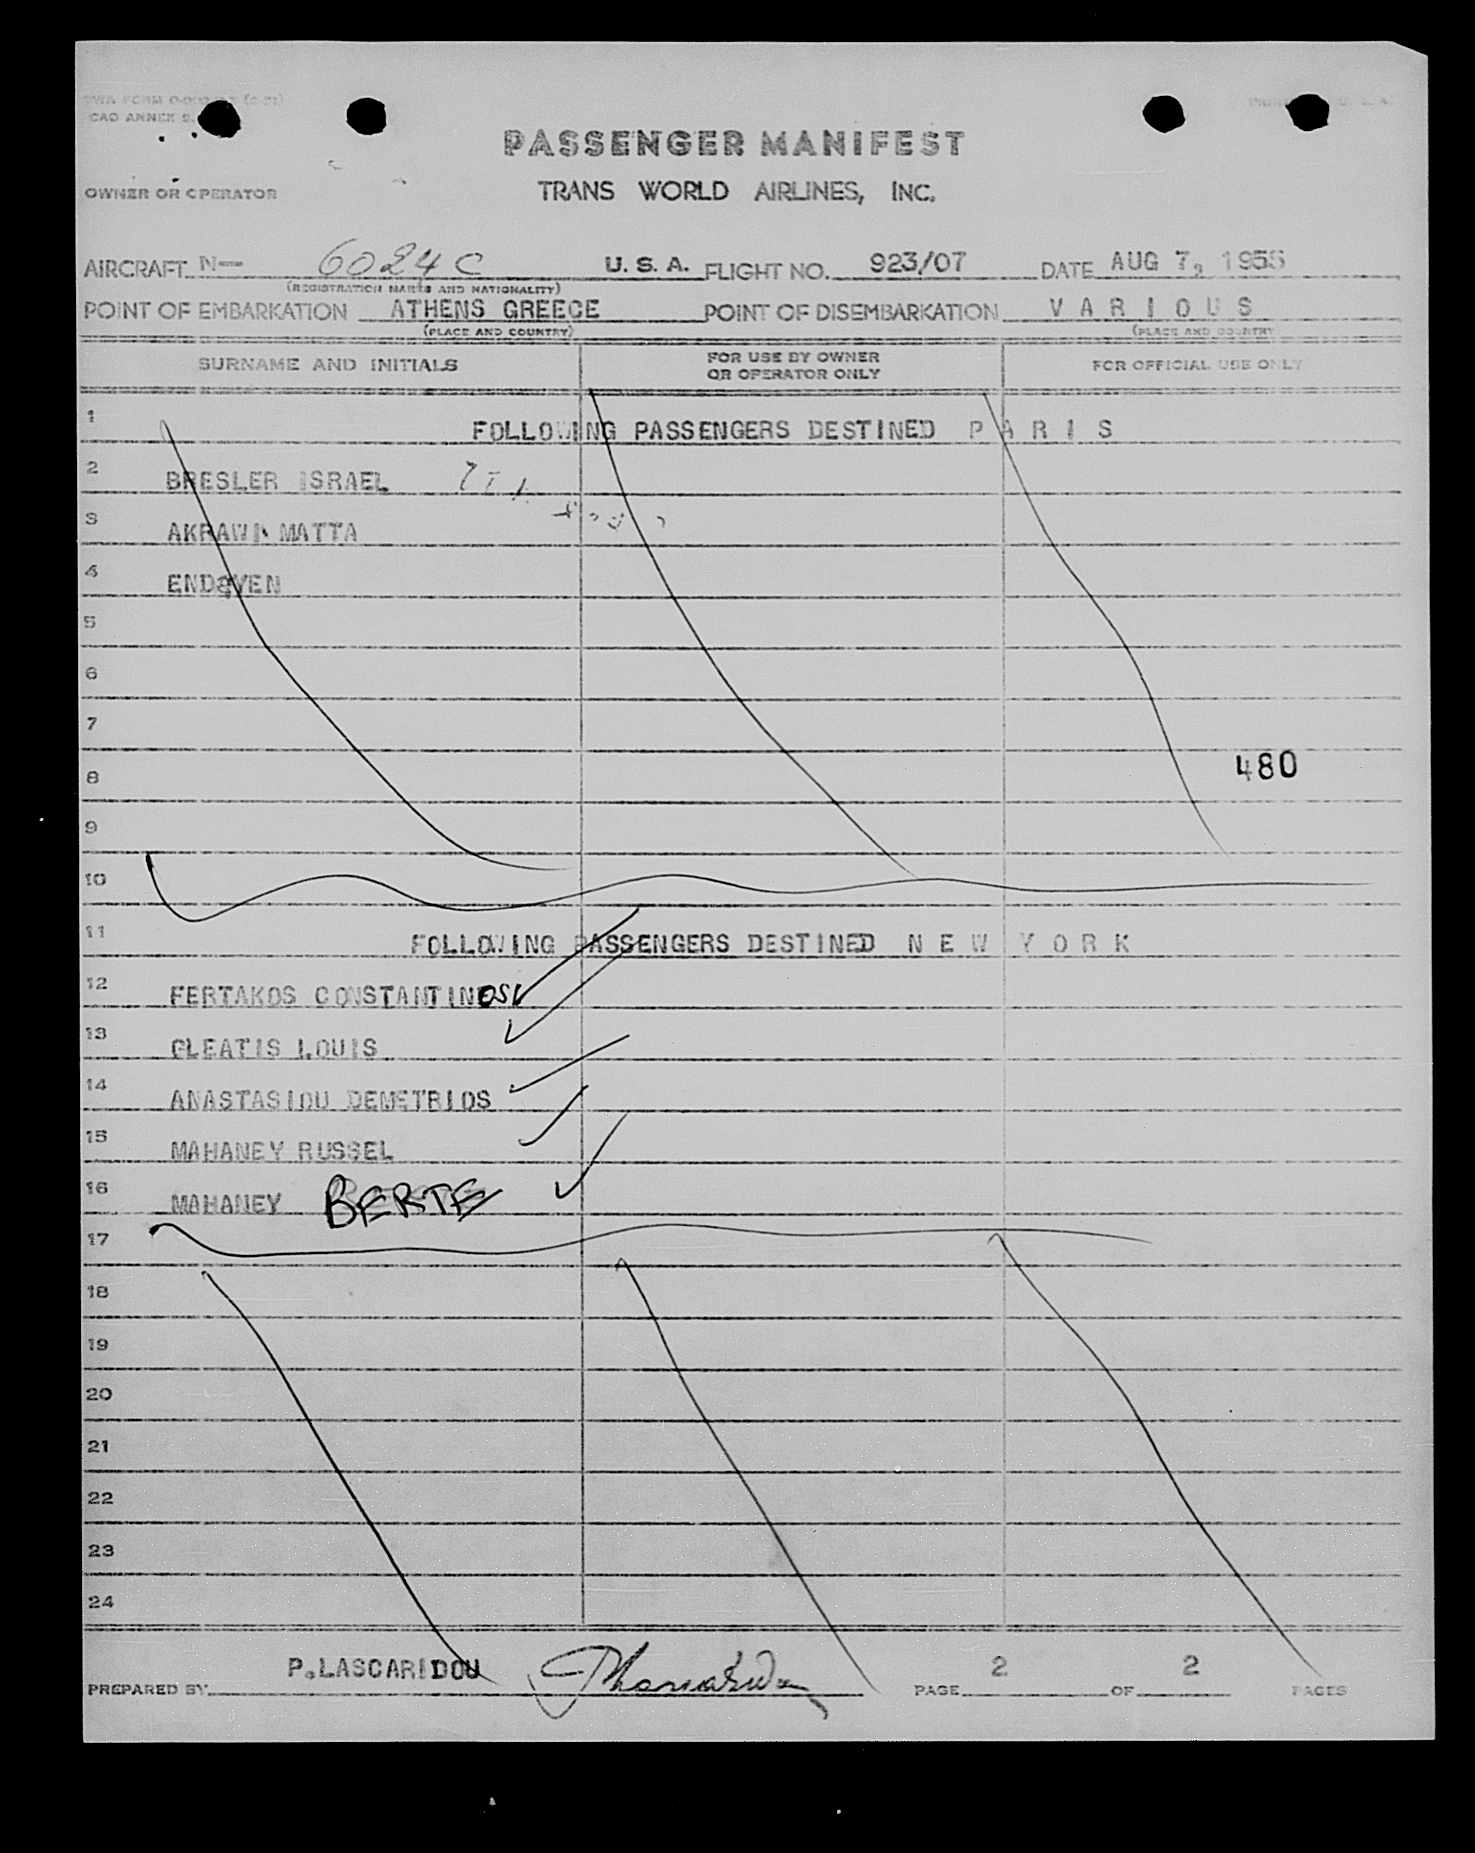 CAO ANNEX 9.
PASSENGER MANIFEST
OWNER OR OPERATOR
TRANS WORLD AIRLINES, INC.
AIRCRAFT N— 6024C U. S. A. FLIGHT NO. 923/07 DATE AUG 7, 1955
(REGISTRATION MARKS AND NATIONALITY)
POINT OF EMBARKATION ATHENS GREECE POINT OF DISEMBARKATION V A R I O U S
(PLACE AND COUNTRY) (PLACE AND COUNTRY
SURNAME AND INITIALS FOR USE BY OWNER OR OPERATOR ONLY FOR OFFICIAL USE ONLY
1 FOLLOWING PASSENGERS DESTINED P A R I S
2 BRESLER ISRAEL
3 AKRAWI MATTA
4 
5
6
7
8 480
9
10
11 FOLLOWING PASSENGERS DESTINED N E W Y O R K
12 FERTAKOS CONSTANTINOS
13 GLEATIS LOUIS
14 ANASTASIOU DEMETRIOS
15 MAHANEY RUSSEL
16 MAHANEY BERTE
17
18
19
20
21
22
23
24
PREPARED BY P.LASCARIDOU PAGE 2 OF 2 PAGES